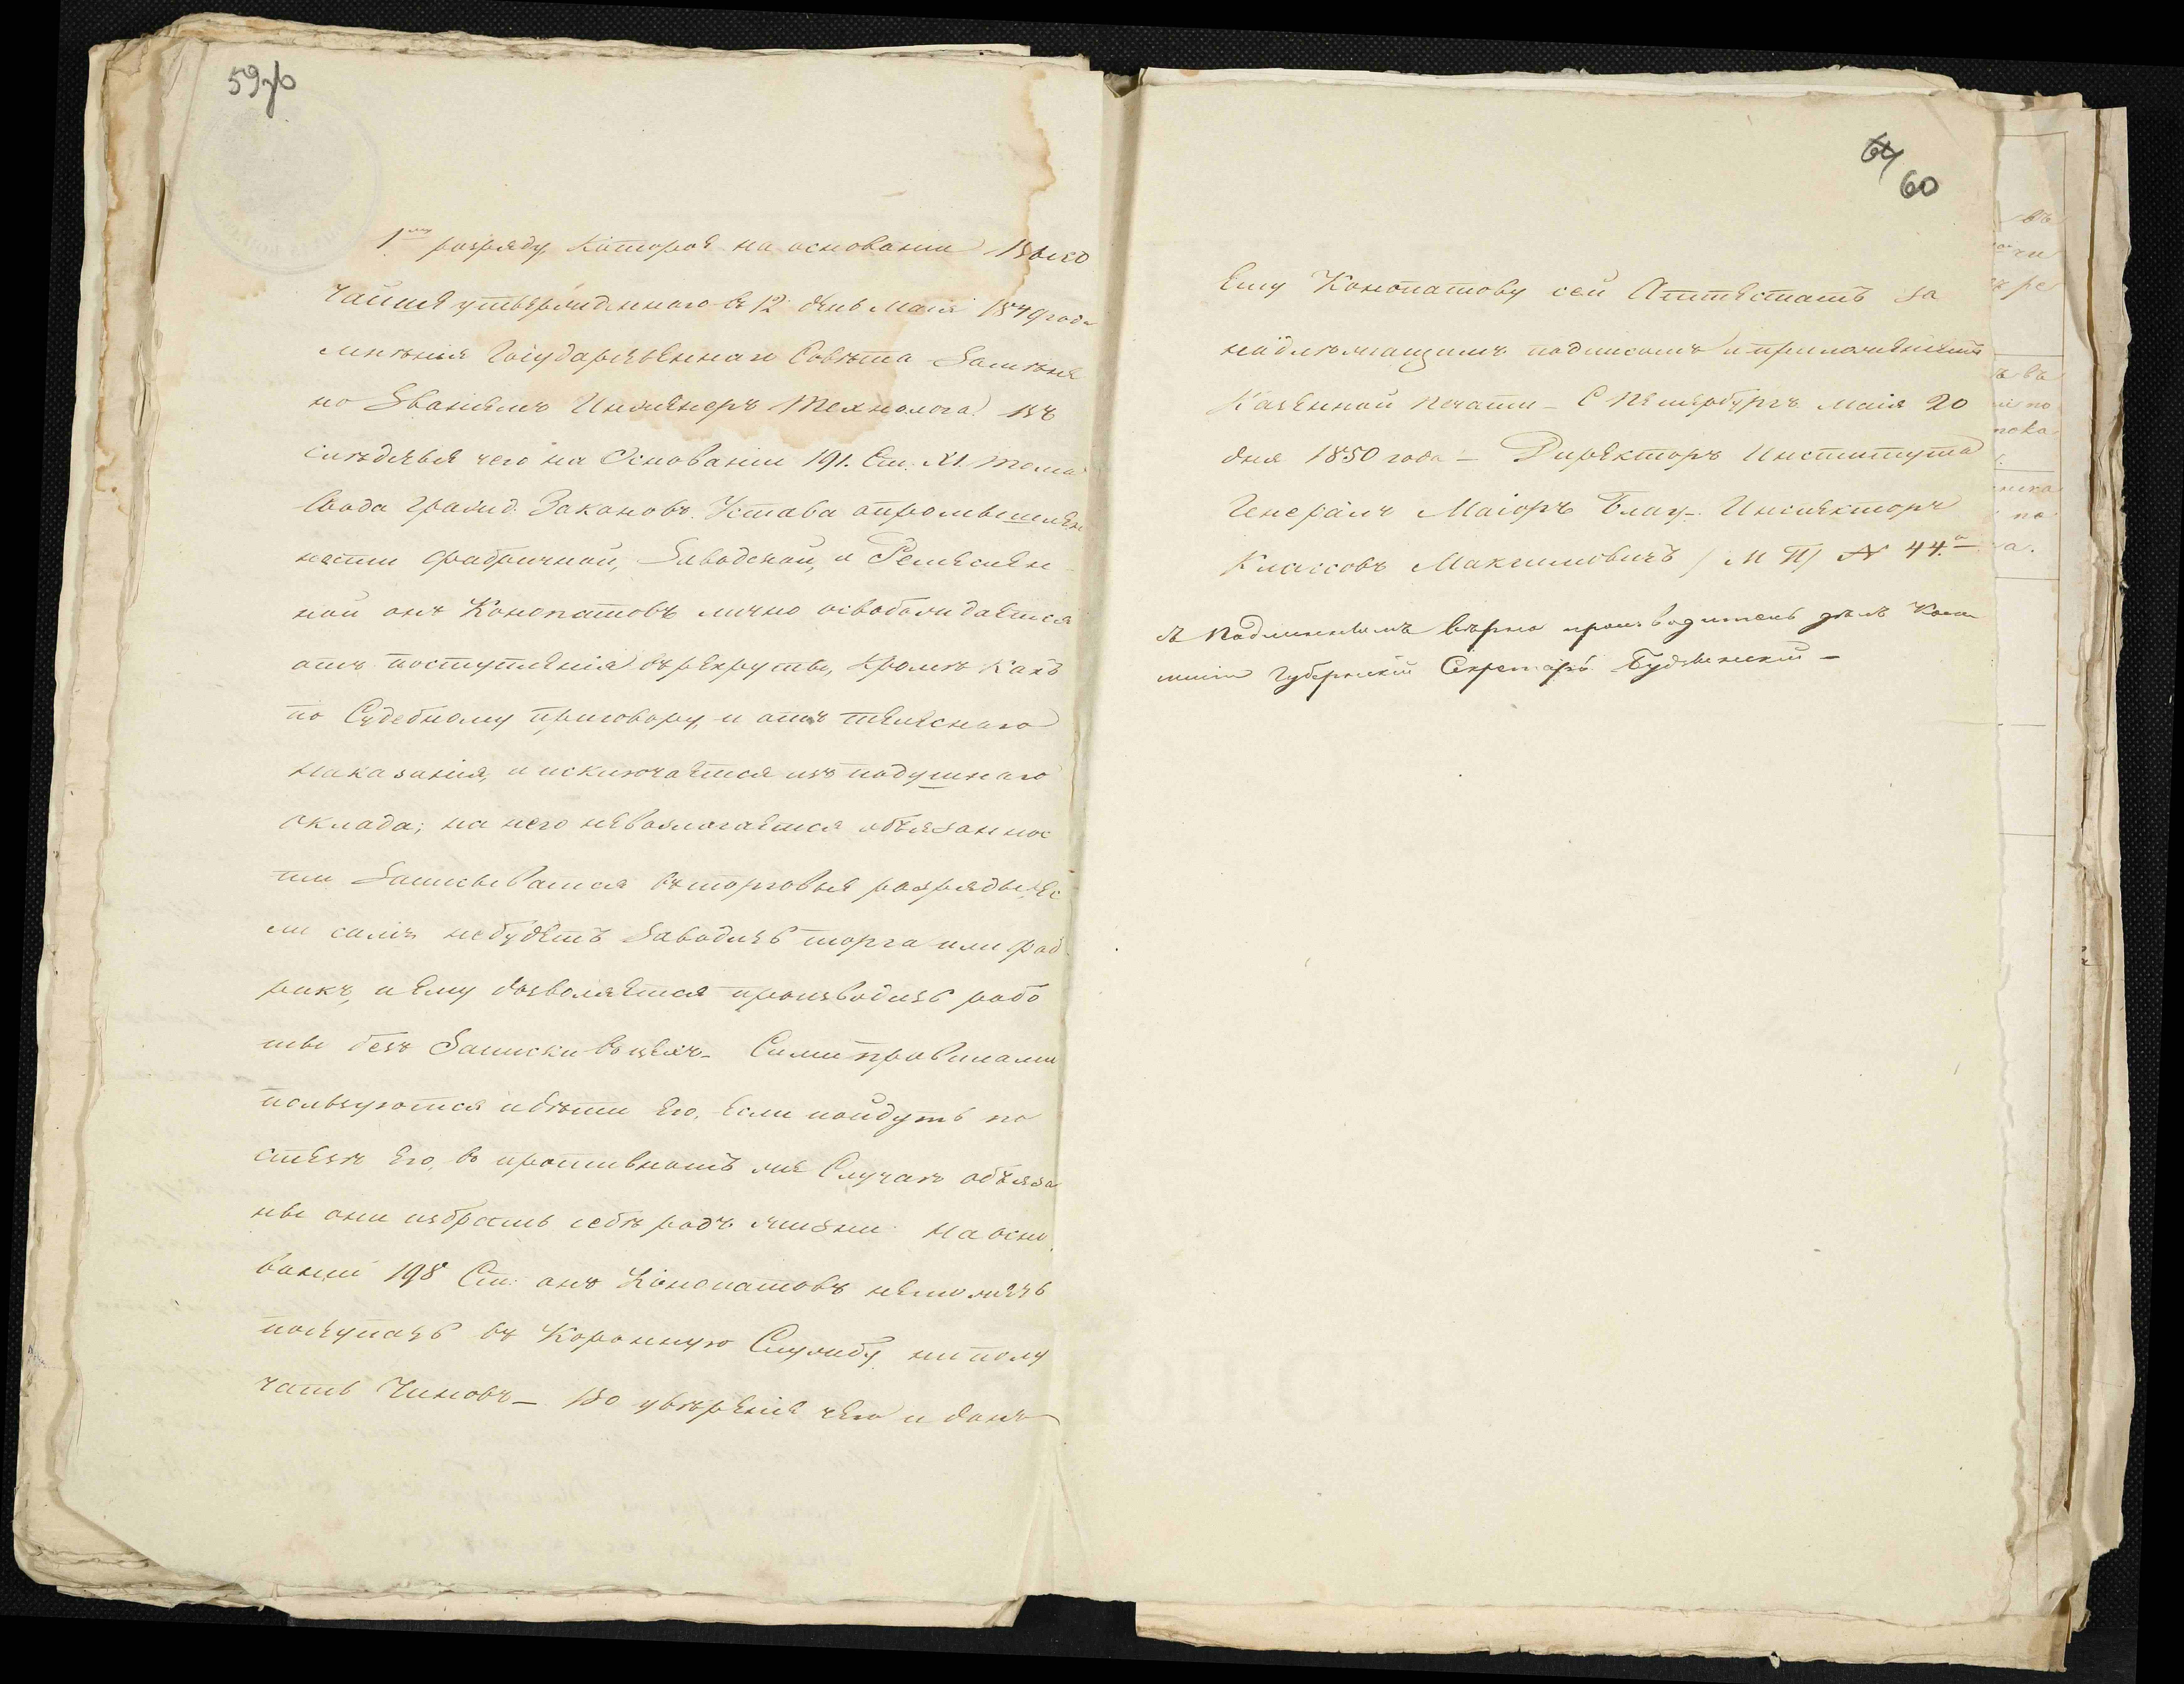 59об
1му разряду, которое на основании Высо
чайше утвержденного въ 12 день маія 1849 года
мнѣнія Государственнаго Совѣта замѣне
но Званіемъ Инженеръ Технолога. Въ
слѣдствіе чего на Основаніи 191. Ст. XI. тома
Свода гражд. Законовъ. Устава опромышлен
ности фабричной, Заводской, и Ремеслен
ной онъ Конопатовъ лично освобождается
отъ поступленія врекруты, кромѣ какъ
по Судебному приговору, и отъ телеснаго
наказанія, и исключается изъ подушнаго
оклада; на него невозлогается объязаннос
ти записыватся вторговыя розряды, ес
ли самъ небудетъ заводить торга или фаб
рикъ, и ему дозволяется производить рабо
ты безъ Записки вцехъ. Сими правилами
пользуются идѣти Его, если пойдутъ по
стезѣ Его, в противномъ же Случаѣ объяза
ны они избрать себѣ родъ жизни. На осно
ваніи 198 Ст. онъ Конопатовъ неможетъ
поступать въ Коронную Службу, ни полу
чать Чиновъ – Во увѣреніе чего и данъ
64
60
Ему Конопатову сей Аттестатъ за
надлежащимъ подписомъ и приложеніемъ
Казенной Печати – С Петербургъ маія 20
дня 1850 года – Директоръ Института
Генералъ Маіоръ Блау – Инспекторъ
Классовъ Максимовичъ / М П / № 44.
Съ подлиннымъ вѣрно производитель дѣлъ Ком
миссіи Губернскій Секретарь